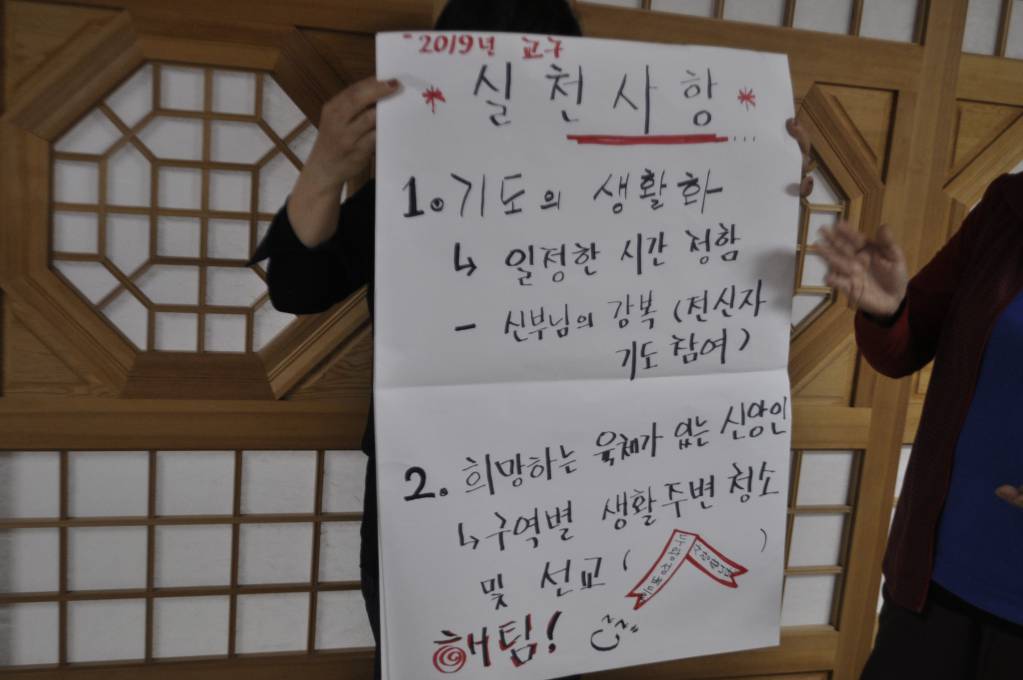 2019년 교구
* 실천사항 * ...
1. 기도의 생활화
↳ 일정한 시간 정함
- 신부님의 강복 (전신자
기도 참여)
2. 희망하는 육체가 없는 신앙인
↳ 구역별 생활주변 청소
및 선교 ( )
해팀!